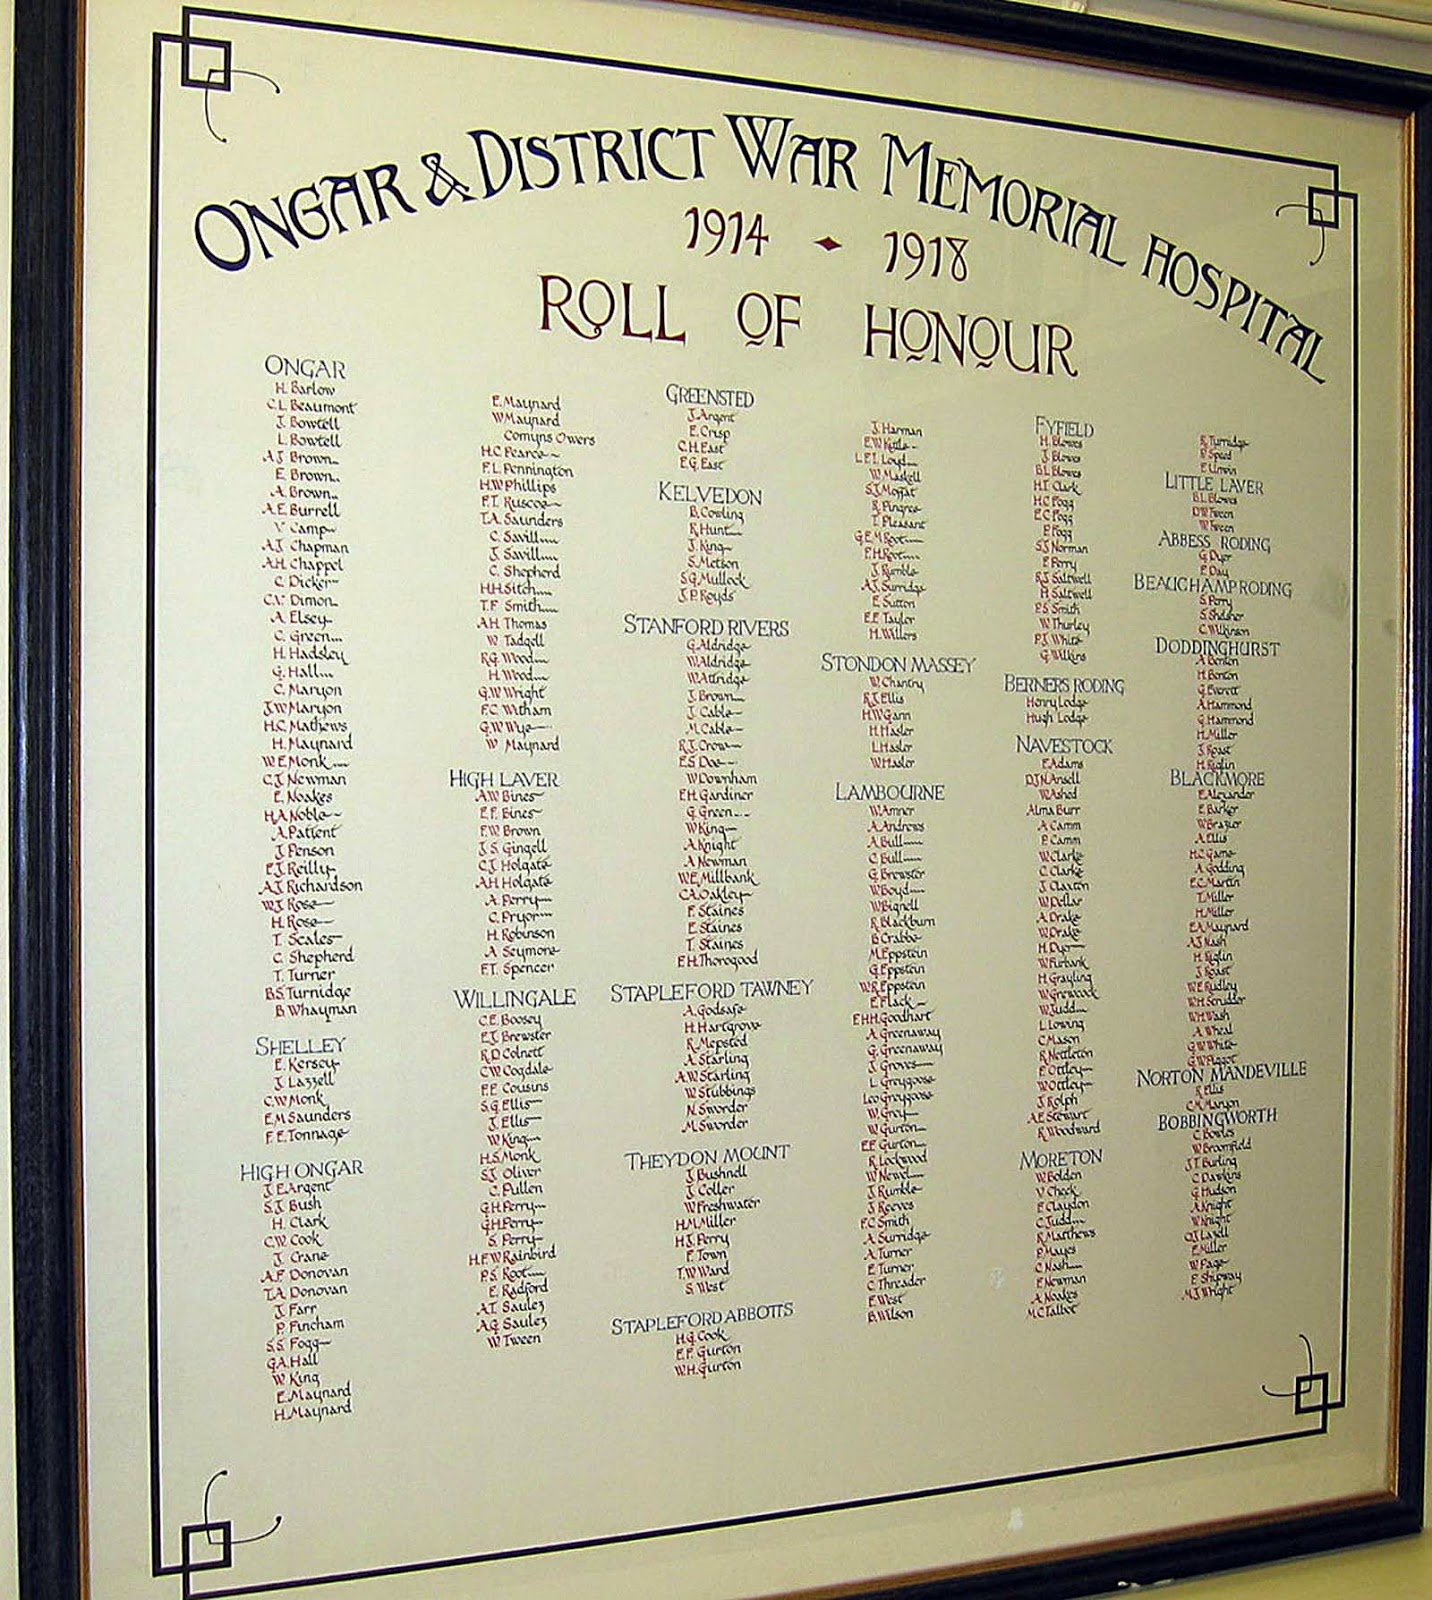 ONGAR & DISTRICT WAR MEMORIAL HOSPITAL
1914 1918
ROLL OF HONOUR
ONGAR
H. Barlow
C.L. Beaumont
J. Bowtell
L. Bowtell
A.J. Brown
E. Brown
A. Brown
A.E. Burrell
V. Camp
A.J. Chapman
A.H. Chappel
C. Dicker
C.V. Dimon
A. Elsey
C. Green
H. Hadsley
G. Hall
C. Maryon
J.W. Maryon
H.C. Mathews
H. Maynard
W.E. Monk
C.J. Newman
E. Noakes
H.A. Noble
A. Patient
J. Penson
E.J. Reilly
A.J. Richardson
W.J. Rose
H. Rose
T. Scales
C. Shepherd
T. Turner
B.S. Turnidge
B. Whayman
SHELLEY
E. Kersey
J. Lazzell
C.W. Monk
E.M. Saunders
F.E. Tonnage
HIGH ONGAR
J.E. Argent
S.J. Bush
H. Clark
C.W. Cook
J. Crane
A.F. Donovan
T.A. Donovan
J. Farr
P. Fincham
S.S. Fogg
G.A. Hall
W. King
E. Maynard
H. Maynard
E. Maynard
W. Maynard
Comyns Owers
H.C. Pearce
F.L. Pennington
H.W. Phillips
F.T. Ruscoe
T.A. Saunders
C. Savill
J. Savill
C. Shepherd
H.H. Sitch
T.F. Smith
A.H. Thomas
W. Tadgell
R.G. Wood
H. Wood
G.W. Wright
F.C. Witham
G.W. Wye
W. Maynard
HIGH LAVER
A.W. Bines
E.F. Bines
F.W. Brown
J.S. Gingell
C.J. Holgate
A.H. Holgate
A. Perry
C. Pryor
H. Robinson
A. Seymore
F.T. Spencer
WILLINGALE
C.E. Boosey
E.J. Brewster
R.D. Colnett
C.W. Cogdale
F.E. Cousins
S.G. Ellis
J. Ellis
W. King
H.S. Monk
S.J. Oliver
C. Pullen
G.H. Perry
G.H. Perry
S. Perry
H.F.W. Rainbird
P.S. Root
E. Radford
A.T. Saulez
A.G. Saulez
W. Tween
GREENSTED
J. Argent
E. Crisp
C.H. East
E.G. East
KELVEDON
B. Cowling
R. Hunt
J. King
S. Metson
S.G. Mullock
J.P. Royds
STANFORD RIVERS
G. Aldridge
W. Aldridge
W. Attridge
J. Brown
J. Cable
M. Cable
R.J. Crow
E.S. Doe
W. Downham
F.H. Gardiner
G. Green
W. King
A. Knight
A. Newman
W.E. Millbank
C.A. Oakley
F. Staines
E. Staines
T. Staines
F.H. Thorogood
STAPLEFORD TAWNEY
A. Godsafe
H. Hartgrove
R. Mepsted
A. Starling
A.W. Starling
W. Stubbings
N. Sworder
M. Sworder
THEYDON MOUNT
J. Bushnell
J. Coller
W. Freshwater
H.M. Miller
H.J. Perry
F. Town
T.W. Ward
S. West
STAPLEFORD ABBOTTS
H.G. Cook
E.F. Gurton
W.H. Gurton
J. Harman
E.W. Kittle
L.E.I. Loyd
W. Maskell
S.J. Moffat
R. Pingree
T. Pleasant
G.E.M. Root
F.H. Root
J. Rumble
A.J. Surridge
E. Sutton
E.E. Taylor
H. Willers
STONDON MASSEY
W. Chantry
R.J. Ellis
H.W. Gann
H. Hasler
L. Hasler
W. Hasler
LAMBOURNE
W. Amner
A. Andrews
A. Bull
C. Bull
G. Brewster
W. Boyd
W. Bignell
R. Blackburn
B. Crabbe
M. Eppstein
G. Eppstein
W.R. Eppstein
E. Flack
E.H.H. Goodhart
A. Greenaway
G. Greenaway
J. Groves
L. Greygoose
Leo Greygoose
W. Gray
W. Gurton
E.F. Gurton
R. Lockwood
W. Newel
J. Rumble
J. Reeves
F.C. Smith
A. Surridge
A. Turner
E. Turner
C. Threader
F. West
B. Wilson
FYFIELD
H. Blowes
J. Blowes
B.L. Blowes
H.T. Clark
H.C. Fogg
E.C. Fogg
F. Fogg
S.J. Norman
F. Perry
R.J. Saltwell
H. Saltwell
P.S. Smith
W. Thurley
P.J. White
G. Wilkins
BERNERS RODING
Henry Lodge
Hugh Lodge
NAVESTOCK
F. Adams
D.J.N. Ansell
W. Ashed
Alma Burr
A. Camm
P. Camm
W. Clarke
C. Clarke
J. Claxton
W. Dellar
A. Drake
W. Drake
H. Dyer
W. Firbank
H. Grayling
W. Grewcock
W. Judd
L. Lowing
C. Mason
R. Nettleton
F. Ottley
W. Ottley
J. Rolph
A.E. Stewart
R. Woodward
MORETON
W. Bolden
V. Cheek
F. Claydon
C. Judd
R. Matthews
P. Mayes
C. Nash
E. Newman
A. Noakes
M.C. Talbot
R. Turnidge
R. Speed
E. Unwin
LITTLE LAVER
B.L. Blowes
D.W. Tween
W. Tween
ABBESS RODING
G. Dyer
F. Day
BEAUCHAMP RODING
S. Perry
C. Wilkinson
DODDINGHURST
A. Benton
H. Benton
G. Everett
A. Hammond
G. Hammond
H. Miller
J. Roast
H. Riglin
BLACKMORE
E. Alexander
E. Barker
W. Brazier
A. Ellis
H.C. Game
A. Godding
E.C. Martin
T. Miller
H. Miller
E.A. Maynard
A.J. Nash
H. Riglin
J. Roast
W.E. Rudley
W.H. Scudder
W.H. Wash
A. Wheal
G.W. White
G.W. Piggot
NORTON MANDEVILLE
R. Ellis
C.M. Maryon
BOBBINGWORTH
C. Bowles
W. Broomfield
J.T. Burling
C. Dawkins
G. Hudson
A. Knight
W. Knight
O.J. Lazell
E. Miller
W. Page
E. Shipway
M.J. Wright